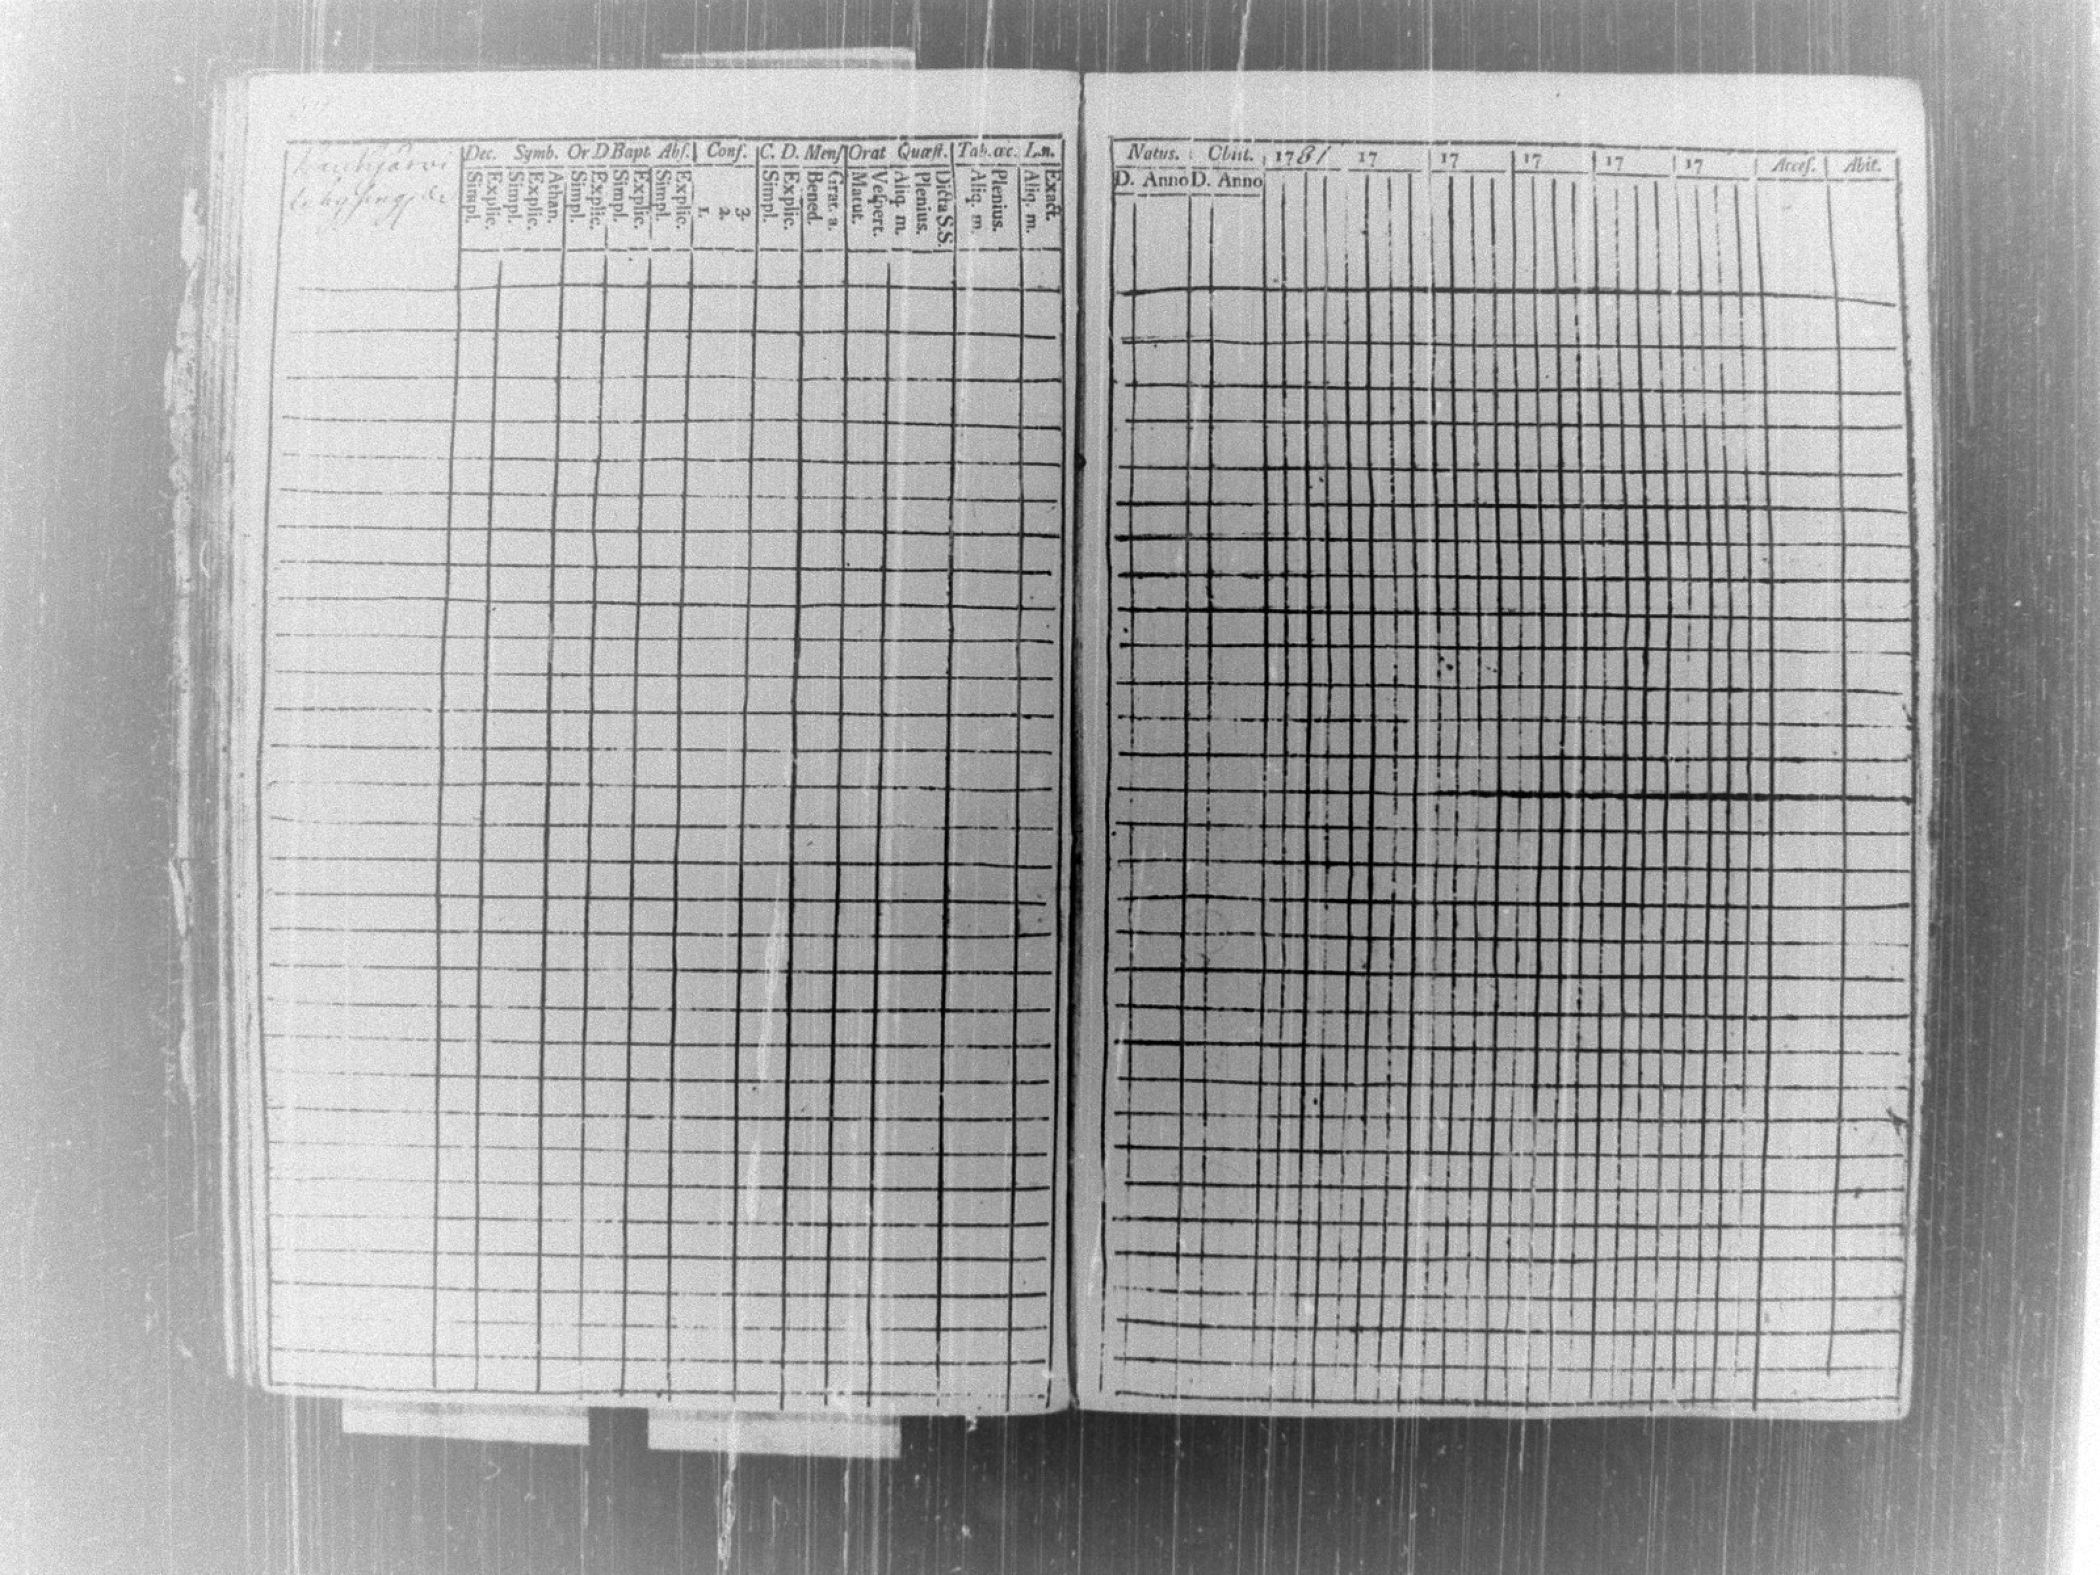 Dec. Symb. Or D Bapt Abſ. Conf. C. D. Menſ Orat Quæſt. Tab. œc. L.n.
Simpl. Explic. Simpl. Explic. Athan. Simpl. Explic. Simpl. Explic. Simpl. Explic. 1. 2. 3. Simpl. Explic. Bened. Grat. a. Matut. Veſpert. Aliq. m. Plenius. Dicta S.S. Aliq. m. Plenius. Aliq. m. Exact.
Natus. Obiit. 1781 17 17 17 17 17 Acceſ. Abit.
D. Anno D. Anno